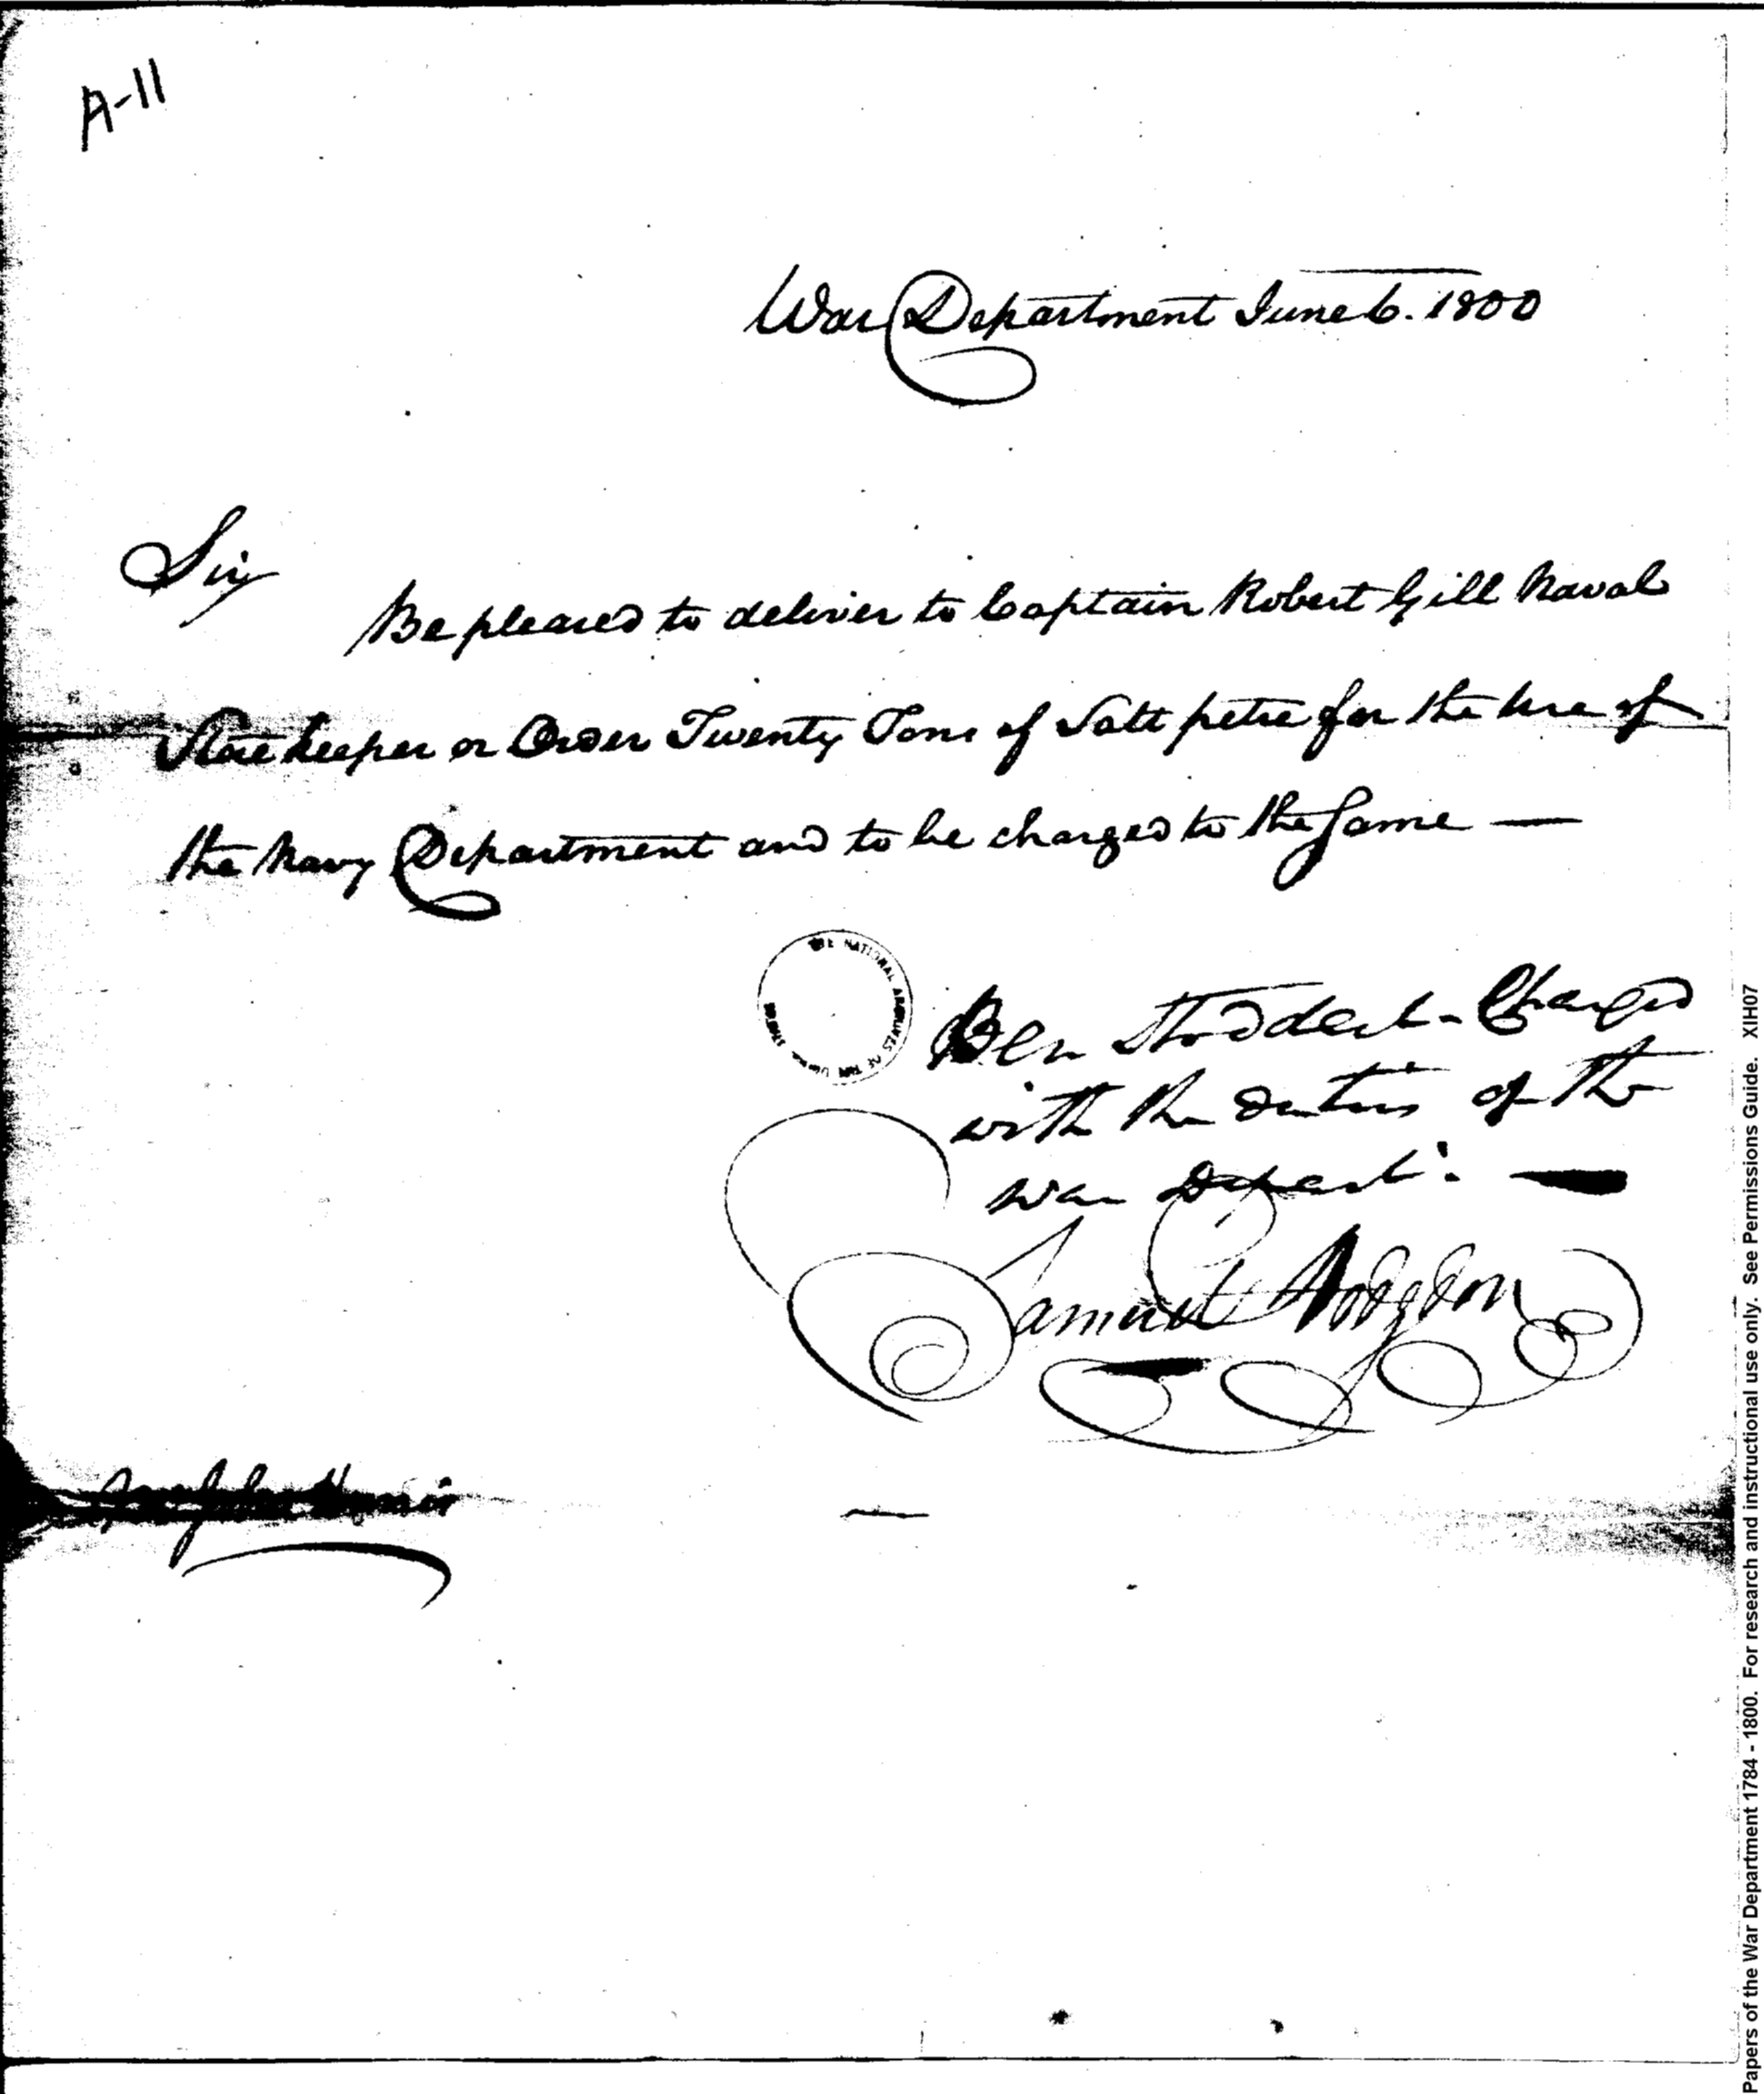 A-11
War Department June 6. 1800
Sir
Be pleased to deliver to Captain Robert Gill Naval
Store keeper or Order Twenty Tons of Salt petre for the Use of
the Navy Department and to be charged to the Same —
THE NATIONAL ARCHIVES OF THE UNITED STATES
Ben Stoddert - Charged
with the duties of the
War Depart:
Samuel Hodgdon
John Harris
Papers of the War Department 1784 - 1800. For research and instructional use only. See Permissions Guide. XIIH07